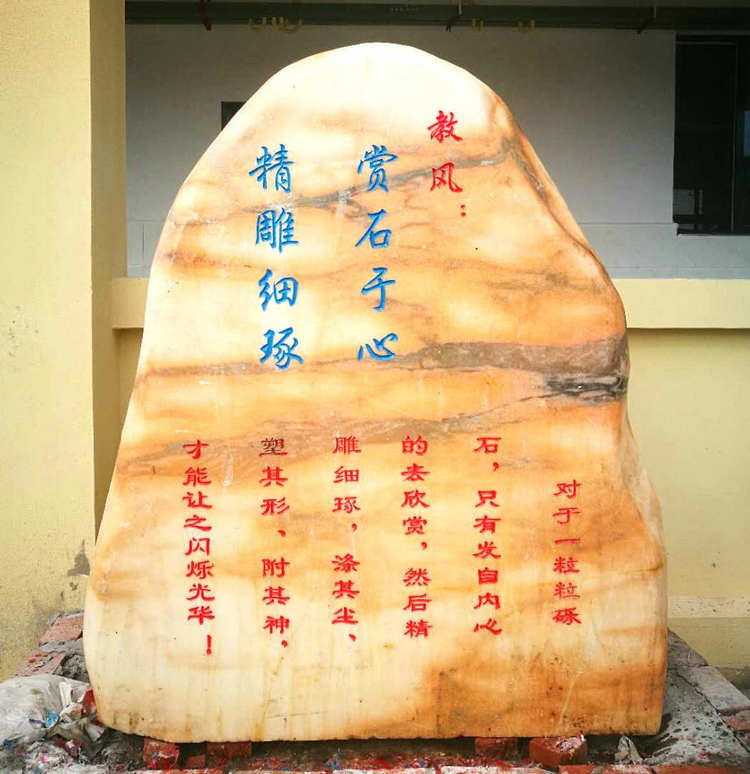 教风：
赏石于心
精雕细琢
对于一粒粒砾
石，只有发自内心
的去欣赏，然后精
雕细琢，涤其尘、
塑其形、附其神，
才能让之闪烁光华！